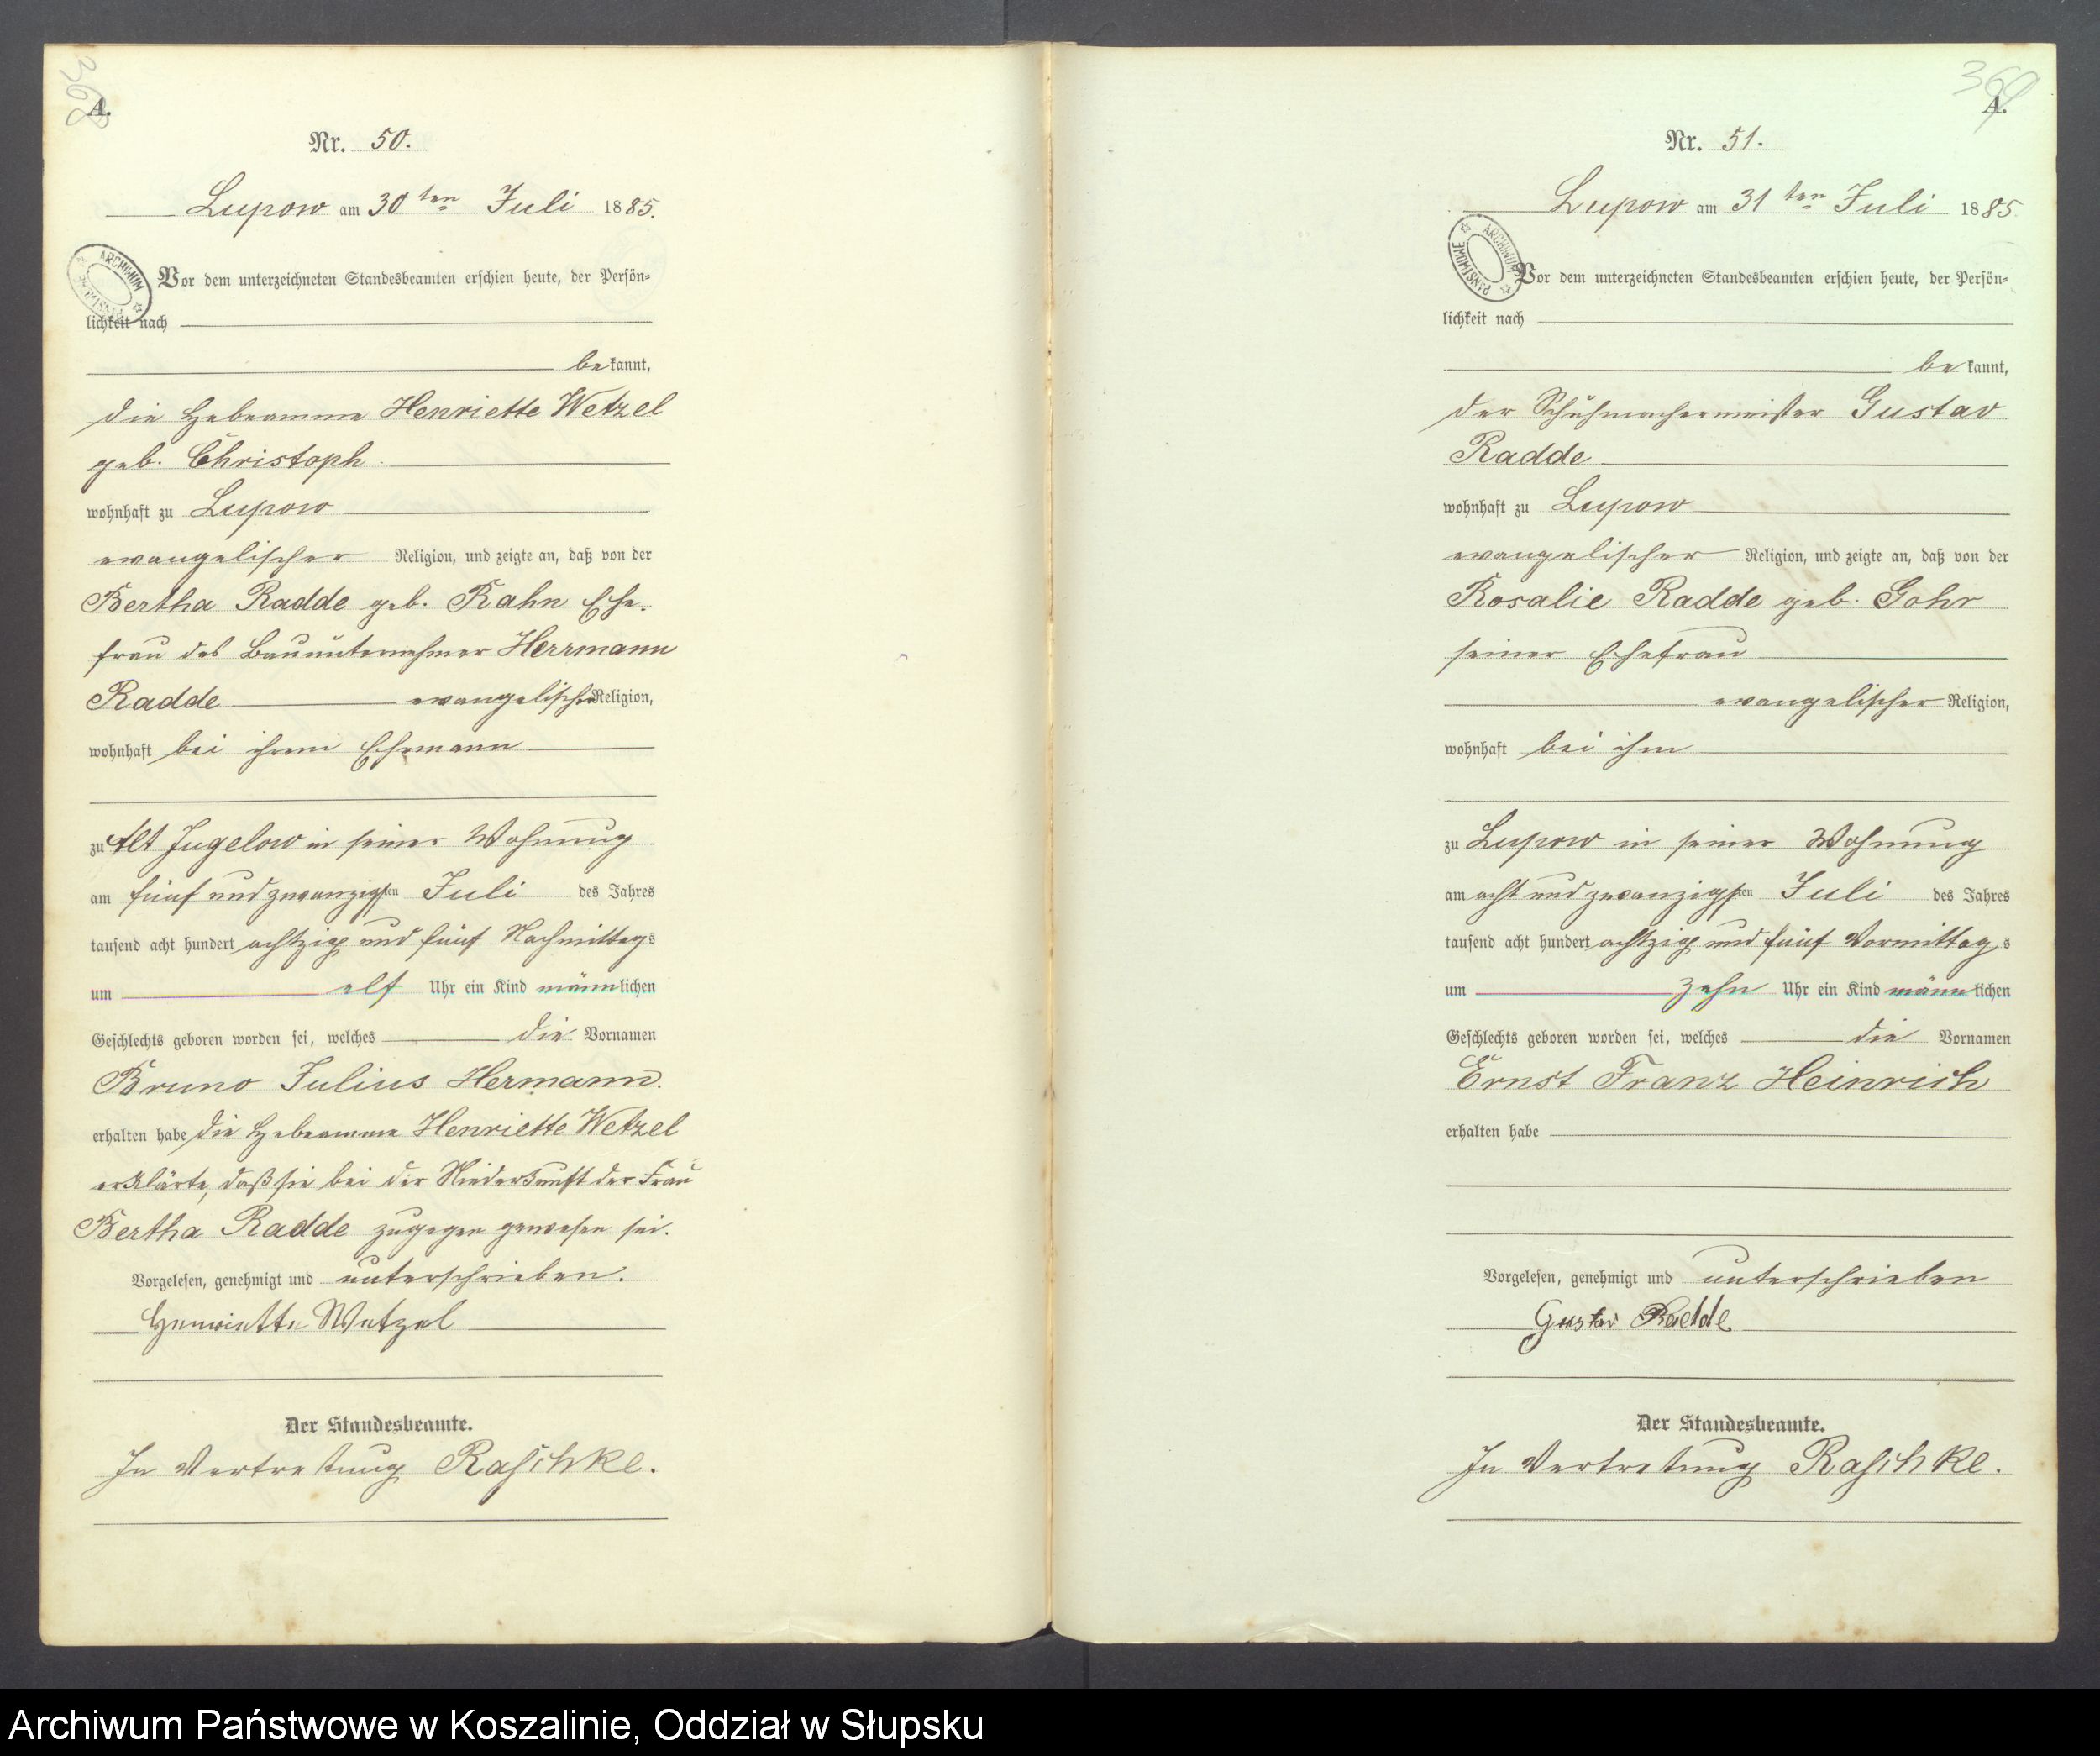 368
A.
Nr. 50.
Lupow am 30 ten Juli 1885.
ARCHIWUM PAŃSTWOWE
Vor dem unterzeichneten Standesbeamten erschien heute, der Persön-
lichkeit nach
bekannt,
die Hebeamme Henriette Wetzel
geb. Christoph.
wohnhaft zu Lupow
evangelischer Religion, und zeigte an, daß von der
Bertha Radde geb. Rahn Ehe-
frau des Bauunternehmer Herrmann
Radde evangelischer Religion,
wohnhaft bei ihrem Ehemann
zu Alt Jugelow in seiner Wohnung
am fünf und zwanzigsten Juli des Jahres
tausend acht hundert achtzig und fünf Nachmittags
um elf Uhr ein Kind männlichen
Geschlechts geboren worden sei, welches die Vornamen
Bruno Julius Hermann.
erhalten habe die Hebeamme Henriette Wetzel
erklärte, daß sie bei der Niederkunft der Frau
Bertha Radde zugegen gewesen sei.
Vorgelesen, genehmigt und unterschrieben.
Henriette Wetzel
Der Standesbeamte.
In Vertretung Raschke.
369
A.
Nr. 51.
Lupow am 31 ten Juli 1885
ARCHIWUM PAŃSTWOWE
Vor dem unterzeichneten Standesbeamten erschien heute, der Persön-
lichkeit nach
bekannt,
der Schuhmachermeister Gustav
Radde
wohnhaft zu Lupow
evangelischer Religion, und zeigte an, daß von der
Rosalie Radde geb. Gohr
seiner Ehefrau
evangelischer Religion,
wohnhaft bei ihm
zu Lupow in seiner Wohnung
am acht und zwanzigsten Juli des Jahres
tausend acht hundert achtzig und fünf Vormittags
um zehn Uhr ein Kind männlichen
Geschlechts geboren worden sei, welches die Vornamen
Ernst Franz Heinrich
erhalten habe
Vorgelesen, genehmigt und unterschrieben
Gustav Radde
Der Standesbeamte.
In Vertretung Raschke.
Archiwum Państwowe w Koszalinie, Oddział w Słupsku